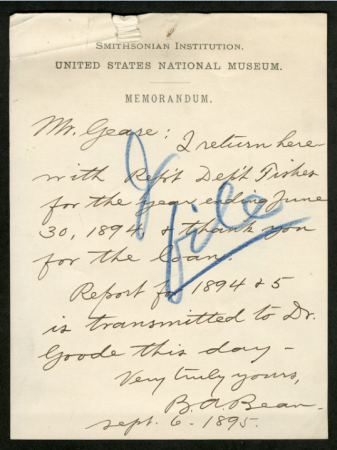 SMITHSONIAN INSTITUTION.
UNITED STATES NATIONAL MUSEUM.
MEMORANDUM.
Mr. Gease: I return here-
with Rept Dep't Fishes
for the year ending June
30, 1894, & thank you
for the loan.
Report for 1894 & 5
is transmitted to Dr.
Goode this day —
Very truly yours,
B. A. Bean.
Sept. 6. 1895.
File